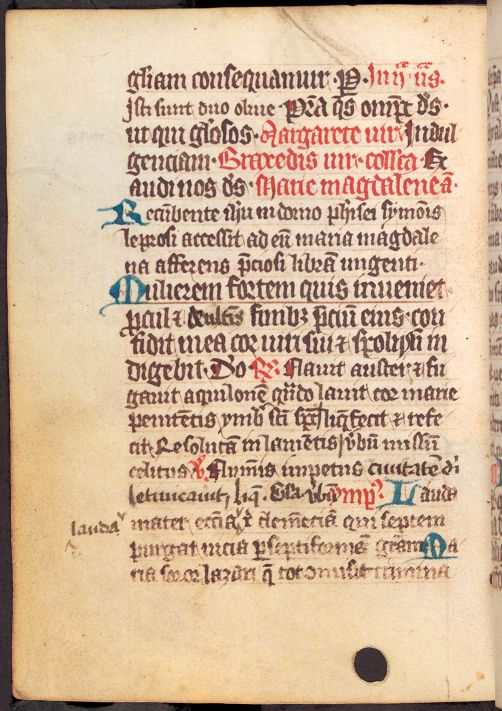 gl̄iam consequamur · P̄ · In ij ūs.
Isti sunt duo oliue · P̄ra q̄s om̄ps d̄s ·
ut qui gl̄osos · Margarete uir Indul
genciam · Praxedis uir · coll̄ca Ex
audi nos d̄s · Marie magdalene ā ·
Recūbente ih̄u in domo ph̄isei symōis
leprosi accessit ad eū maria magdale
na afferens p̄ciosi librā ungenti ·
Mulierem fortem quis inueniet
p̄cul ⁊ de ultīs finibꝫ p̄ciū eius · con
fidit in ea cor uiri sui ⁊ spolijs n̄ in
digebit · Do R̄ Flauit auster ⁊ fu
gauit aquilonē q̄n̄do lauit cor marie
penitētis ymbꝛ sc̄i sp̄s liq̄fecit ⁊ refe
cit · Resolutā in lamētis ṽbū missū
celitus V̄ Flumīs impetus ciuitatē d̄i
letificauit liq̄ · ṽbū ymp̄ꝰ · Lauda
laudā mater ecc̄ia x̄ clemēciā qui septem
purgat uicia p septiformē grām Ma
ria soror lazari q̄ tot cōmisit crimina